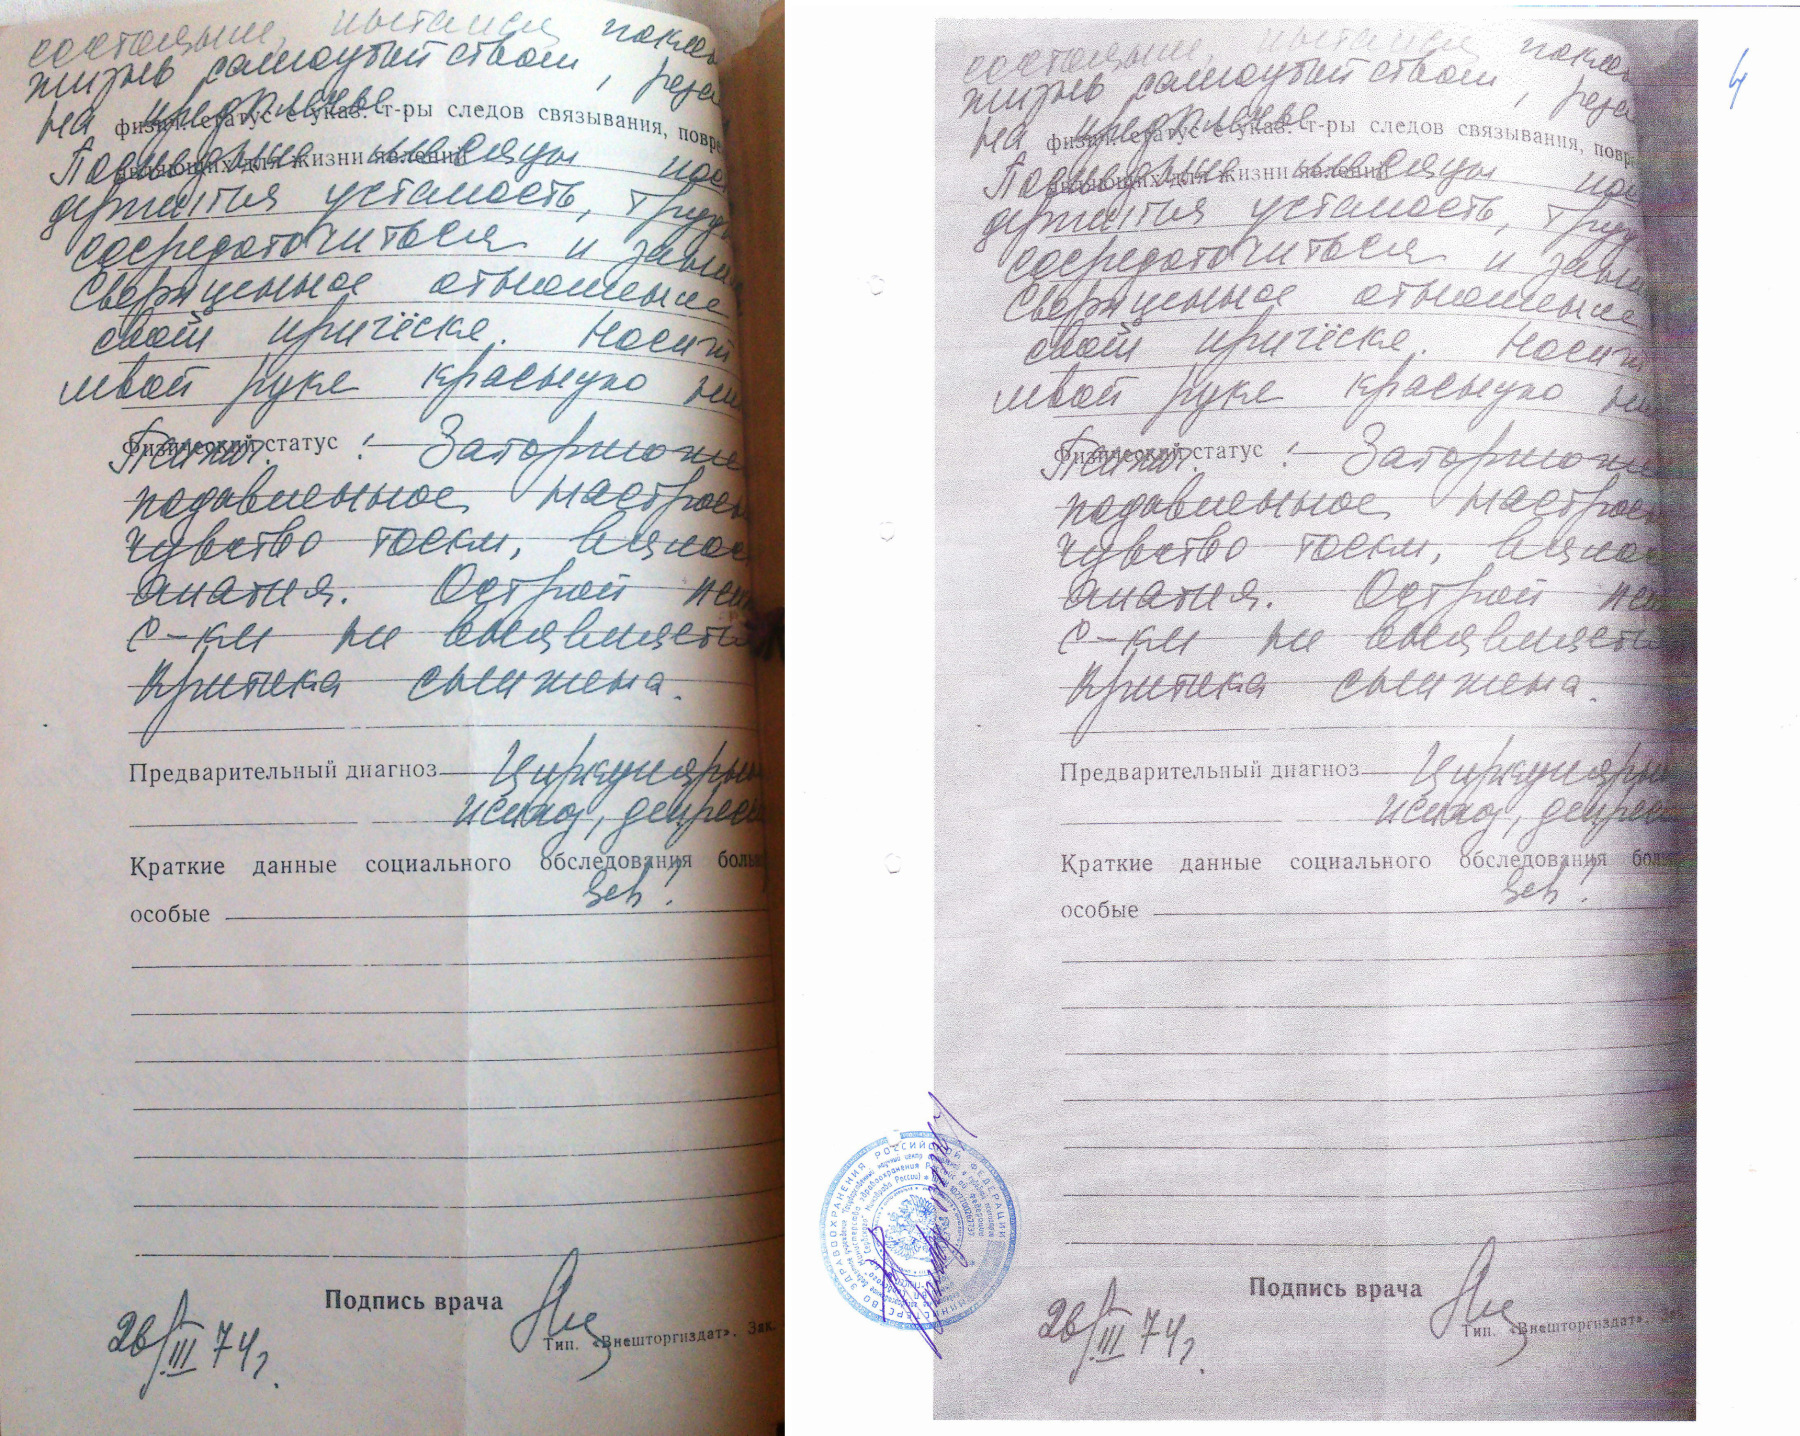 состоянии, пытался покон
жизнь самоубийством, реза
на предплечье
физич. статус с указ. т-ры следов связывания, повре
Последние месяцы
ляющих для жизни явлений
держится усталость, труд
сосредоточиться и
Священное отношение
своей причёске. Носит
левой руке красную ни
Физический статус : Заторможе
Психич.
подавленное настроен
чувство тоски, вялос
апатия. Острой пси
с-ки не выявляется
Критика снижена.
Предварительный диагноз Циркулярн
психоз, депресс
Краткие данные социального обследования боль
особые
Подпись врача
26/III 74г.
Тип. «Внешторгиздат». Зак.
4
состоянии, пытался покон
жизнь самоубийством, реза
на предплечье
физич. статус с указ. т-ры следов связывания, повр
Последние месяцы
ляющих для жизни явлений
держится усталость, труд
сосредоточиться и
Священное отношение
своей причёске. Носит
левой руке красную ни
Физический статус : Заторможе
Психич.
подавленное настроен
чувство тоски, вялос
апатия. Острой пси
с-ки не выявляется
Критика снижена.
Предварительный диагноз Циркулярн
психоз, депресс
Краткие данные социального обследования боль
особые
МИНИСТЕРСТВО ЗДРАВООХРАНЕНИЯ РОССИЙСКОЙ ФЕДЕРАЦИИ
Подпись врача
26/III 74г.
Тип. «Внешторгиздат».